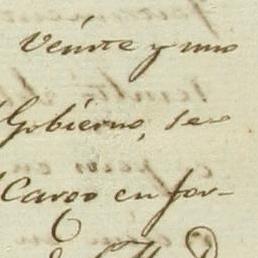 Veinte y uno
Gobierno, se
Cargo en for-